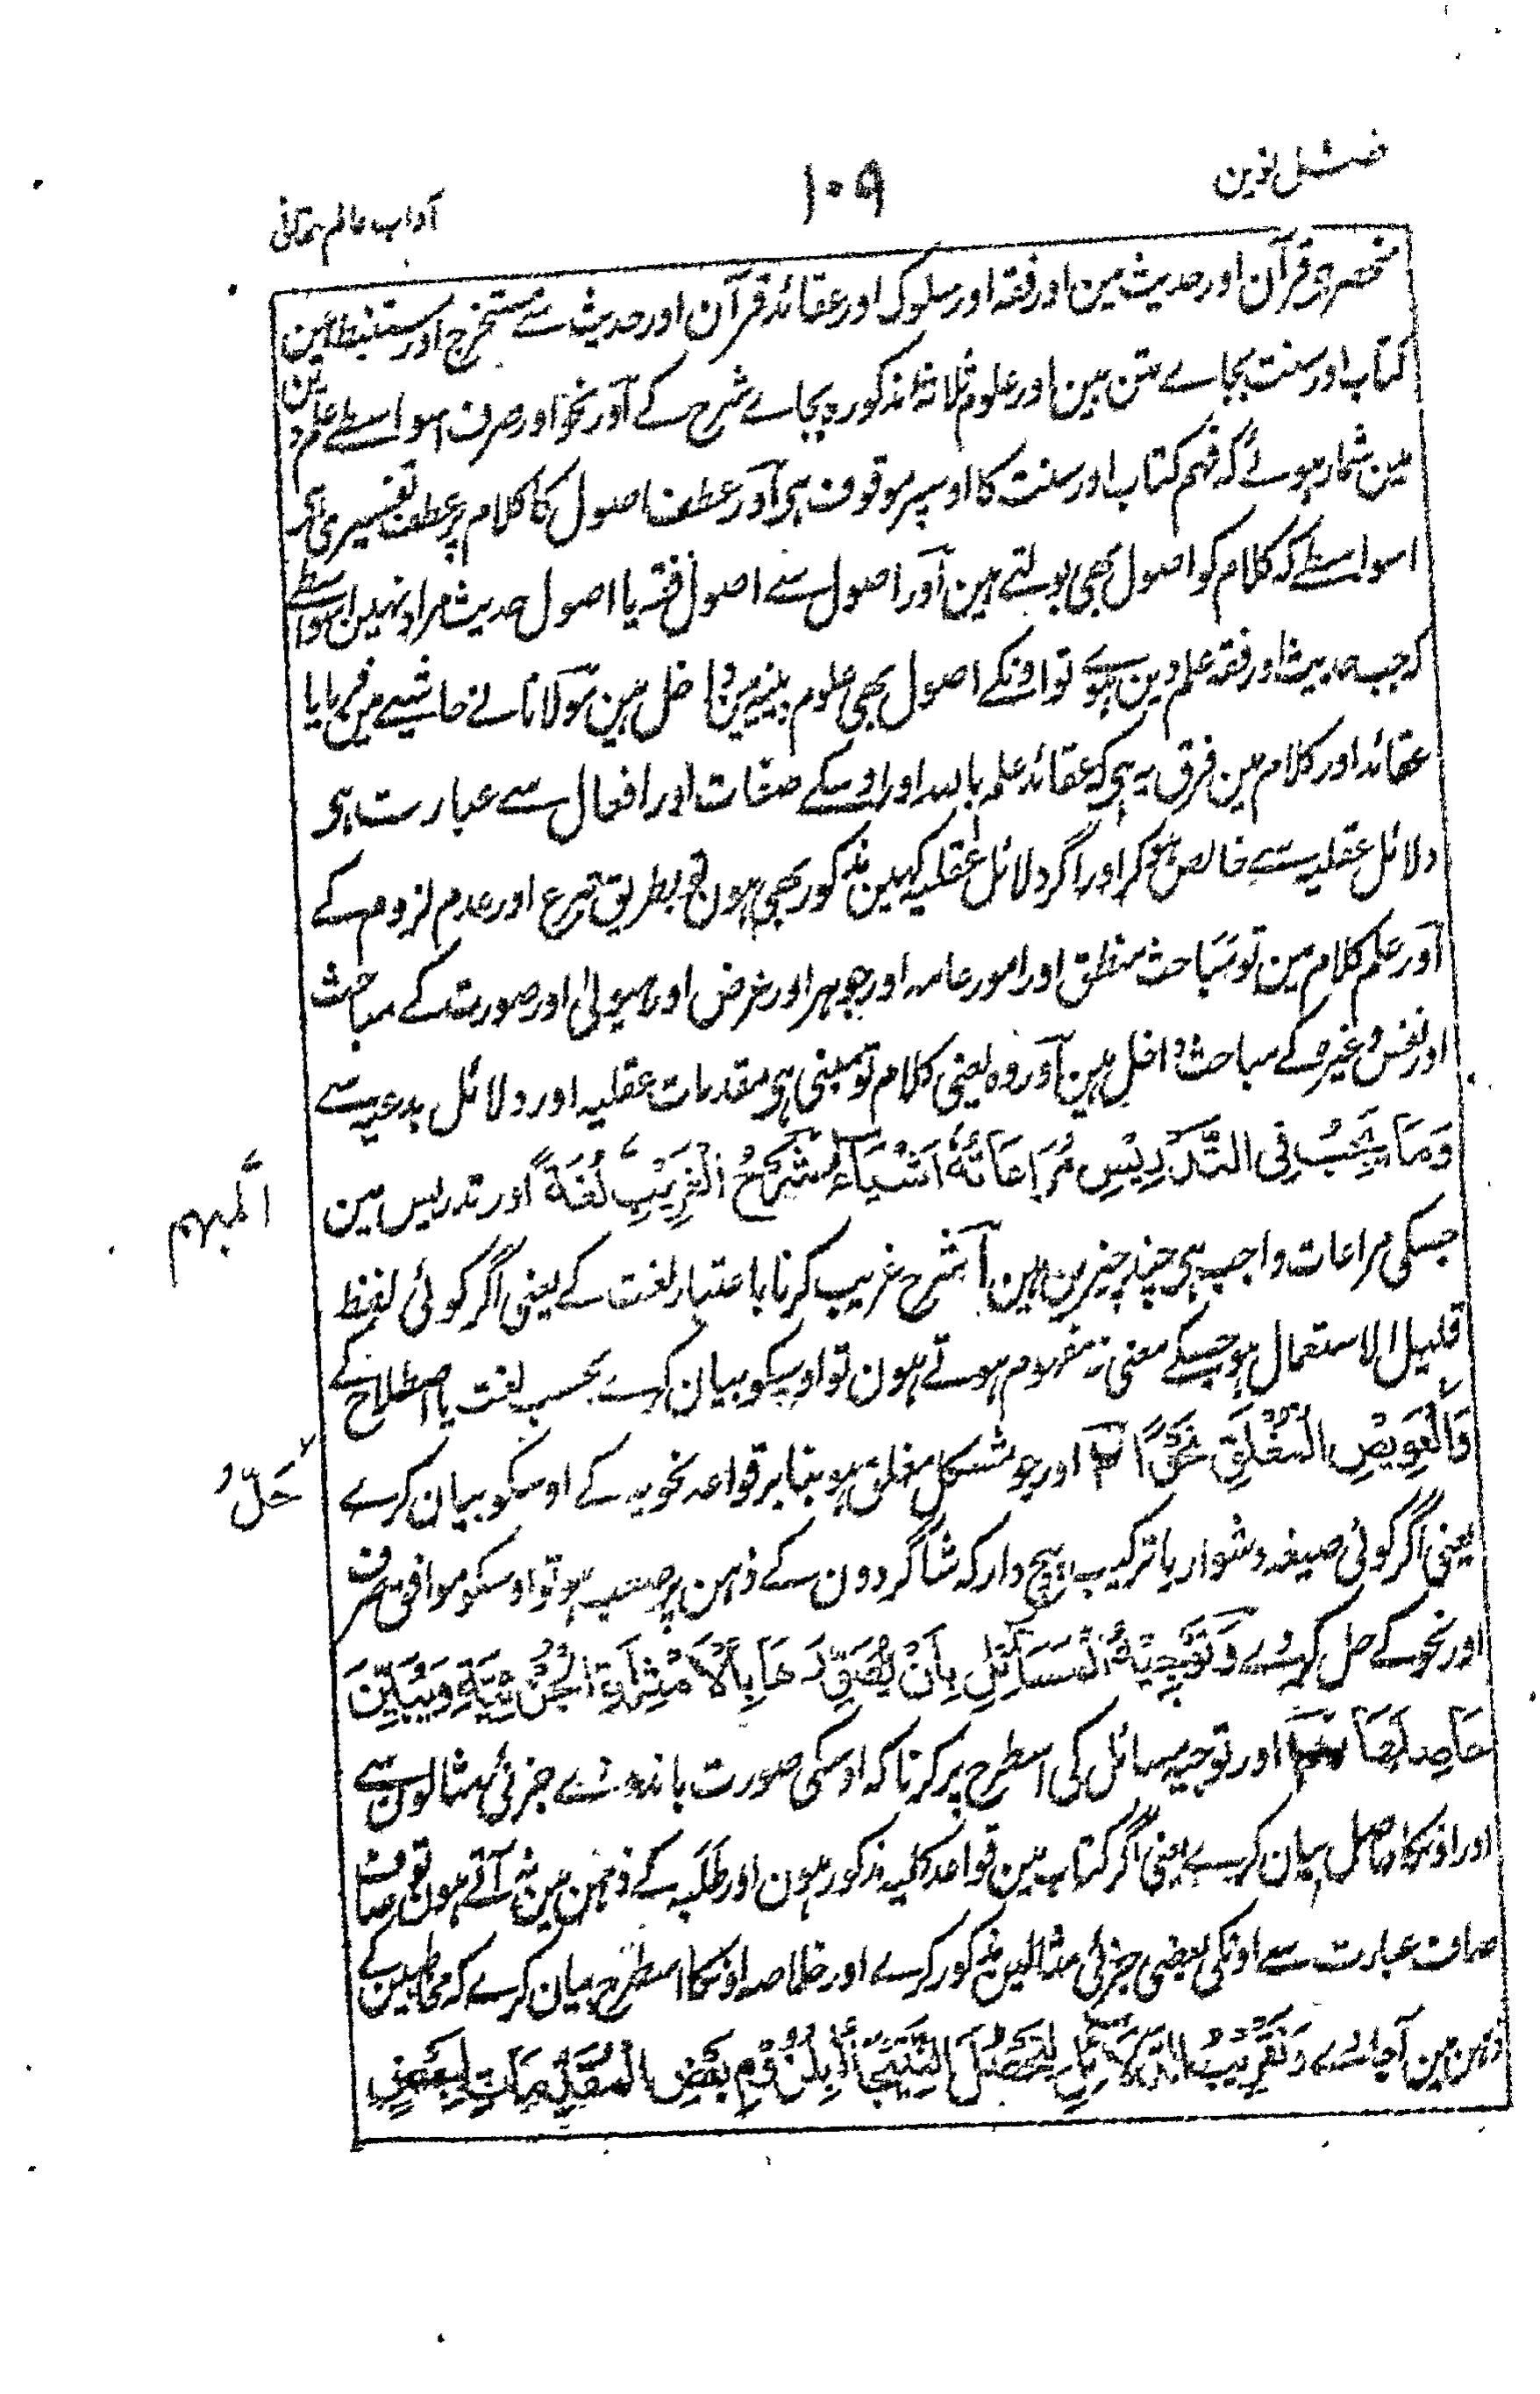 فصل نوین
۱۰۹
آداب عالم حقانی
منحصر ہی قرآن اور حدیث مین اور فقہ اور سلوک اور عقائد قرآن اور حدیث سے مستخرج اور مستنبط ہین
کتاب اور سنت بجاے متن ہین اور علوم ثلاثہ مذکورہ بجاے شرح کے آور نحو اور صرف اسواسطے علم دین
مین شمار ہوئے کہ فہم کتاب اور سنت کا اوسپر موقوف ہی آور عطف اصول کا کلام پر عطف تفسیری ہی
اسواسطے کہ کلام کو اصول بھی بولتے ہین آور اصول سے اصول فقہ یا اصول حدیث مراد نہین اسواسطے
کہ جب حدیث اور فقہ علم دین ہوئے تو اونکے اصول بھی علوم دینیہ مین داخل ہین مولانا نے حاشیے مین فرمایا
عقائد اور کلام مین فرق یہ ہی کہ عقائد علم باللہ اور اوسکے صفات اور افعال سے عبارت ہی
دلائل عقلیہ سے خالص ہو کر اور اگر دلائل عقلیہ کہین مذکور بھی ہون تو بطریق تبرع اور عدم لزوم کے
آور علم کلام مین تو مباحث منطق اور امور عامہ اور جوہر اور عرض اور ہیولیٰ اور صورت کے مباحث
اور نفس وغیرہ کے مباحث داخل ہین آور وہ یعنی کلام تو مبنی ہی مقدمات عقلیہ اور دلائل بدعیہ سے
وَمَا يَجِبُ فِى التَّدْرِيْسِ مُرَاعَاتُهٗ اَشْيَاءُ شَرْحُ الْغَرِيْبِ لُغَةً اور تدریس مین
اَلْمُبْهَم
جسکی مراعات واجب ہی چند چیزین ہین ۱ شرح غریب کرنا باعتبار لغت کے یعنی اگر کوئی لفظ
قلیل الاستعمال ہو جسکے معنی نہ مفہوم ہوتے ہون تو اوسکو بیان کرے بحسب لغت یا اصطلاح کے
وَالْعَوِيْصِ الْمُغْلَقِ نَحْوًا ۲ اور جو مشکل مغلق ہو بنابر قواعد نحویہ کے اوسکو بیان کرے
حَلُّ
یعنی اگر کوئی صیغہ دشوار یا ترکیب پیچ دار کہ شاگردون کے ذہن پر صعب ہو تو اوسکو موافق صرف
اور نحو کے حل کر دے وَتَوْجِيْهُ الْمَسَائِلِ بِاَنْ يُصَوِّرَهَا بِالْاَمْثِلَةِ الْجُزْئِيَّةِ وَيُبَيِّنَ
حَاصِلَهَا اور توجیہ مسائل کی اسطرح پر کرنا کہ اوسکی صورت باندھ دے جزئی مثالون سے
اور اونکا حاصل بیان کرے یعنی اگر کتاب مین قواعد کلیہ مذکور ہون اور طلبہ کے ذہن مین نہ آتے ہون تو صاف
صاف عبارت سے اونکی بعضی جزئی مثالین مذکور کرے اور خلاصہ اونکا اسطرح بیان کرے کہ مخاطبین کے
ذہن مین آجاوے وَتَقْرِيْبُ الدَّلَائِلِ لِتَحْصُلَ النَّتِيْجَةُ بِلُزُوْمِ بَعْضِ الْمُقَدِّمَاتِ لِبَعْضٍ